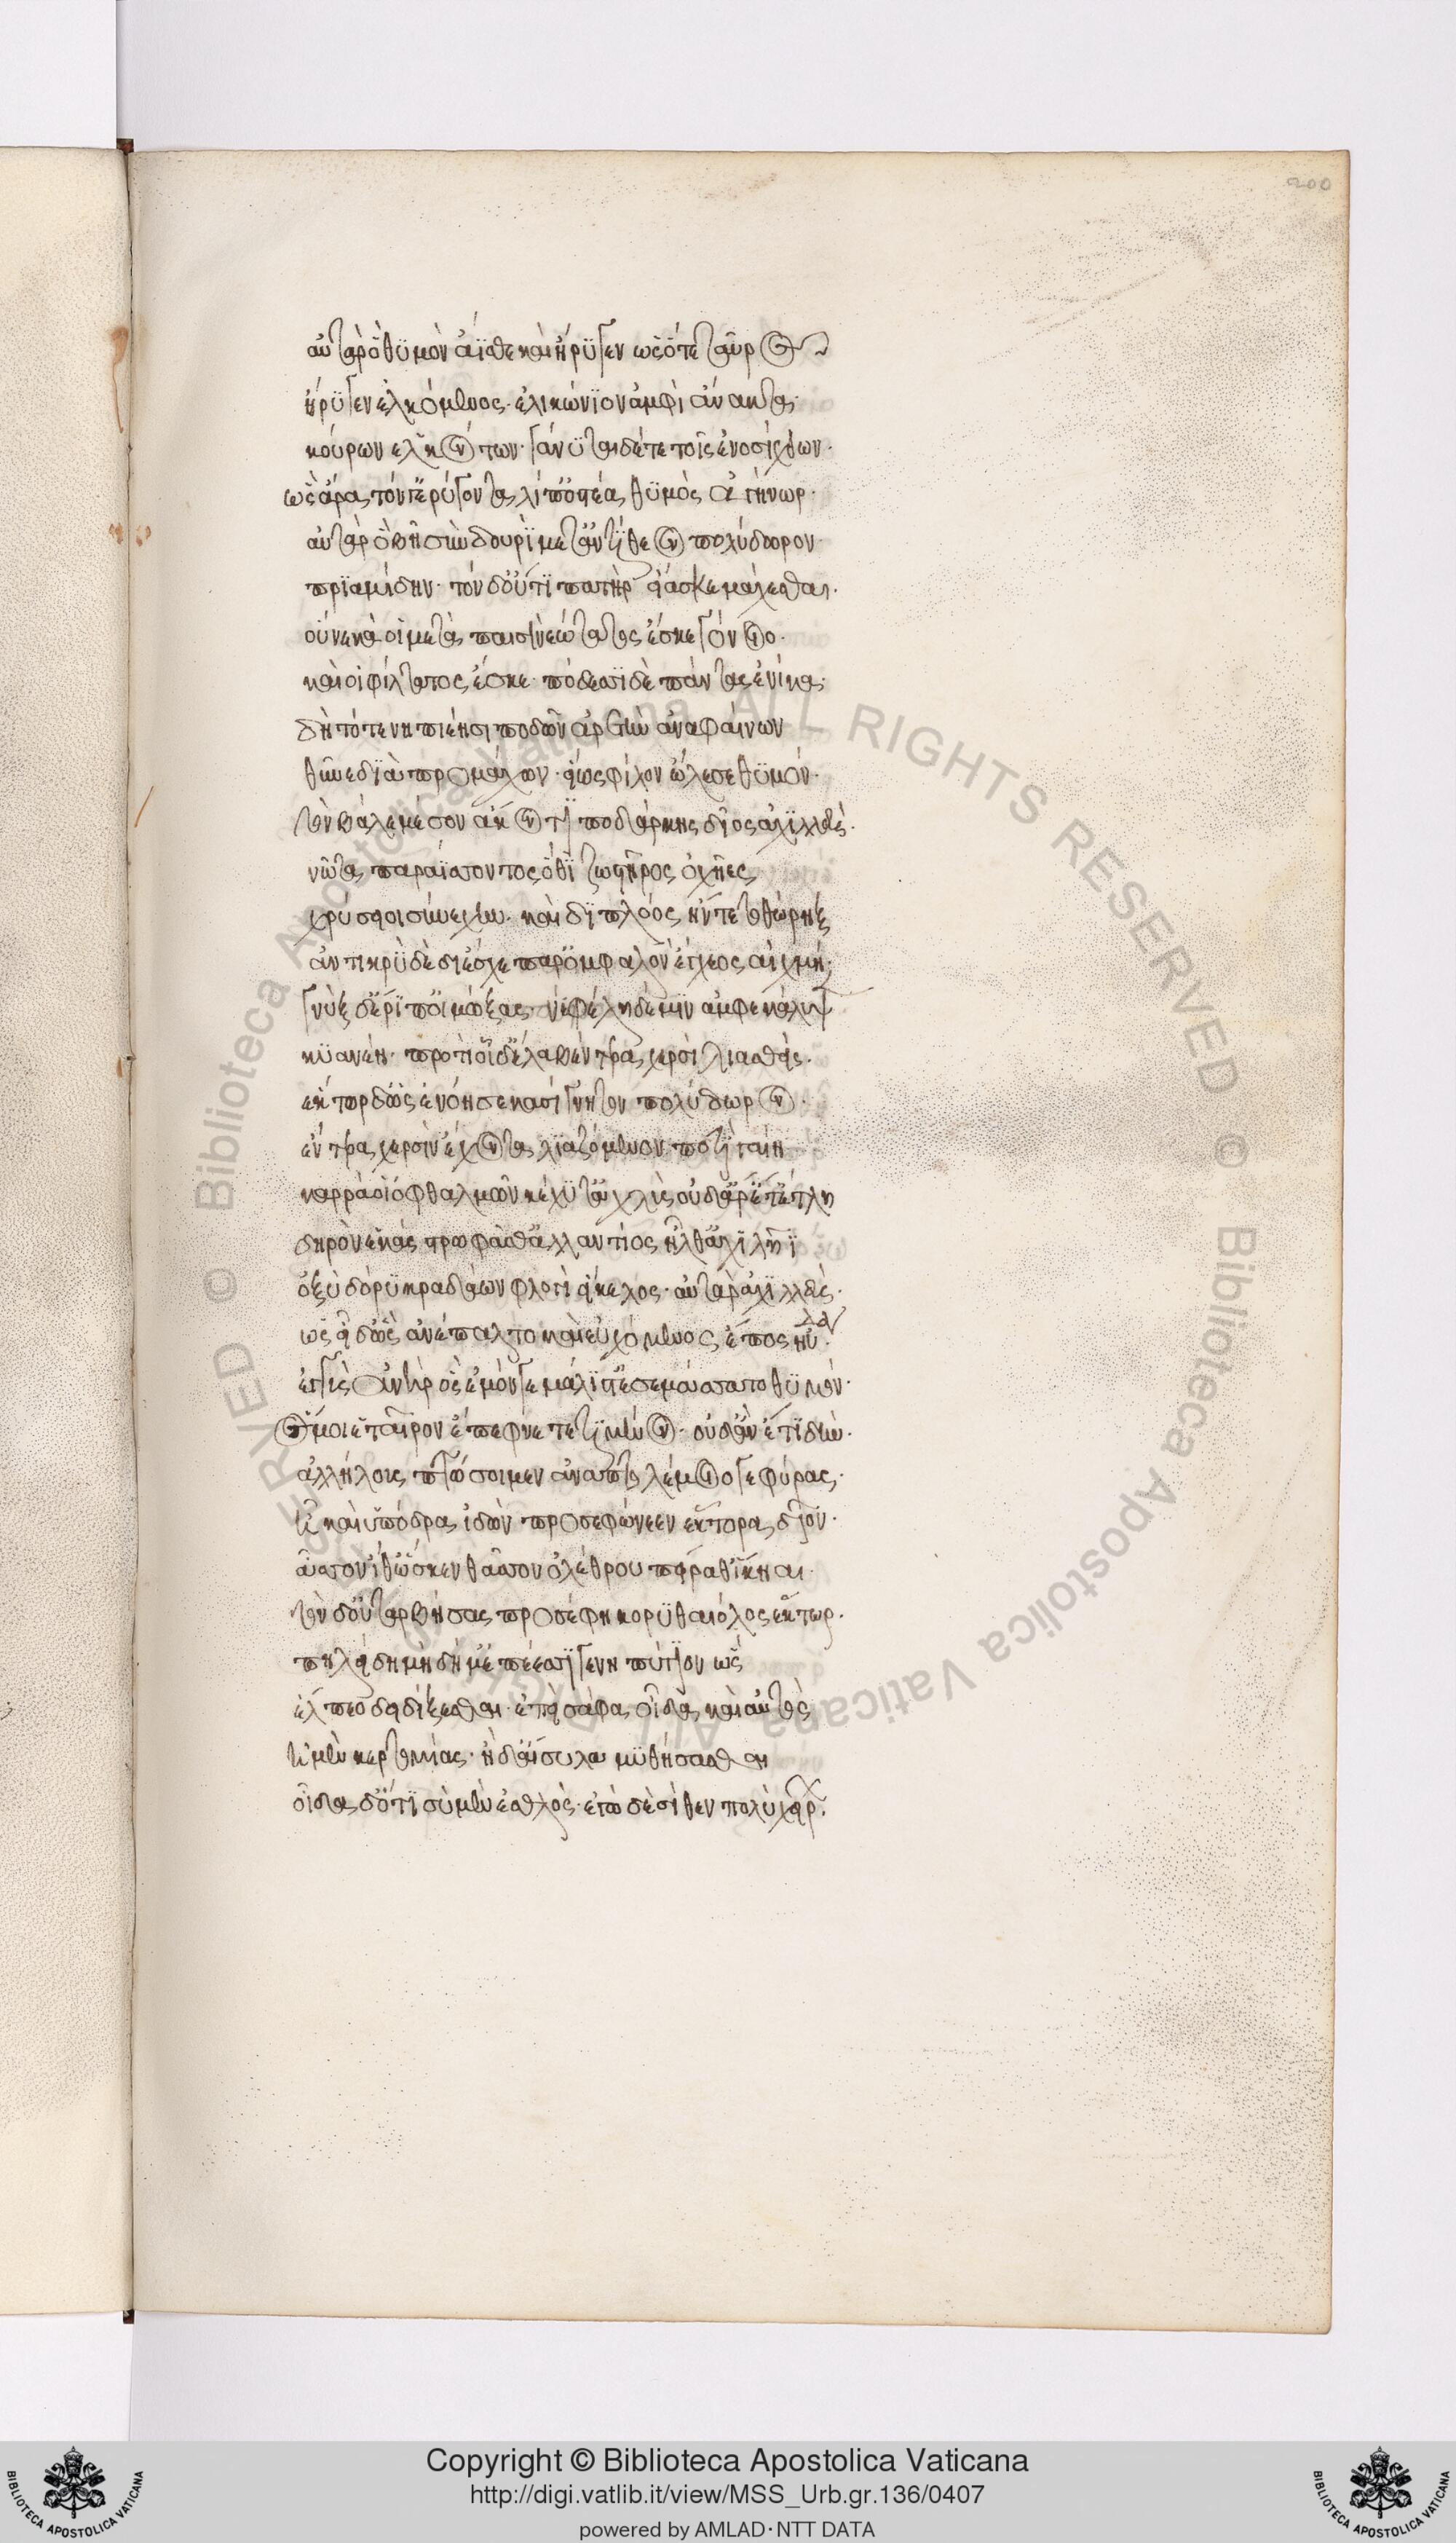 200
αὐτὰρ ὁ θυμὸν ἄϊσθε καὶ ἤρυγεν ὡς ὅτε ταῦρος
ἤρυγεν ἑλκόμενος· ἑλικώνιον ἀμφὶ ἄνακτα·
κούρων ἑλκόντων· γάνυται δέ τε τοῖς ἐνοσίχθων·
ὣς ἄρα τόν γ' ἐρυγόντα λίπ' ὀστέα θυμὸς ἀγήνωρ·
αὐτὰρ ὁ βῆ σὺν δουρὶ μετ' ἀντίθεον πολύδωρον
πριαμίδην· τὸν δ' οὔτι πατὴρ εἴασκε μάχεσθαι·
οὕνεκά οἱ μετὰ παισὶ νεώτατος ἔσκε γόνοιο·
καί οἱ φίλτατος ἔσκε· πόδεσσι δὲ πάντας ἐνίκα·
δὴ τότε νηπιέῃσι ποδῶν ἀρετὴν ἀναφαίνων
θῦνε διὰ προμάχων· εἵως φίλον ὤλεσε θυμόν·
τὸν βάλε μέσον ἄκοντι ποδάρκης δῖος ἀχιλλεὺς·
νῶτα παραΐσσοντος ὅθι ζωστῆρος ὀχῆες
χρύσειοι σύνεχον· καὶ διπλόος ἤντετο θώρηξ
ἀντικρὺ δὲ διέσχε παρ' ὀμφαλὸν ἔγχεος αἰχμή·
γνὺξ δ' ἔριπ' οἰμώξας· νεφέλη δέ μιν ἀμφεκάλυψε
κυανέη· προτὶ οἷ δ' ἔλαβ' ἔντερα χερσὶ λιασθείς·
ἕκτωρ δ' ὡς ἐνόησε κασίγνητον πολύδωρον·
ἔντερα χερσὶν ἔχοντα λιαζόμενον ποτὶ γαίῃ
κάρ ῥά οἱ ὀφθαλμῶν κέχυτ' ἀχλὺς οὐδ' ἄρ' ἔτ' ἔτλη
δηρὸν ἑκὰς στρωφᾶσθ' ἀλλ' ἀντίος ἦλθ' ἀχιλῆϊ
ὀξὺ δόρυ κραδάων φλογὶ εἴκελος· αὐτὰρ ἀχιλλεὺς·
ὡς εἶδ' ὣς ἀνέπαλτο καὶ εὐχόμενος ἔπος ηὔδα·
ἐγγὺς ἀνὴρ ὃς ἐμόν γε μάλιστ' ἐσεμάσσατο θυμόν·
ὅς μοι ἑταῖρον ἔπεφνε τετιμένον· οὐδ' ἂν ἔτι δὴν·
ἀλλήλους πτώσσοιμεν ἀνὰ πτολέμοιο γεφύρας·
ἦ καὶ ὑπόδρα ἰδὼν προσεφώνεεν ἕκτορα δῖον·
ἆσσον ἴθ' ὥς κεν θᾶσσον ὀλέθρου πείραθ' ἵκηαι·
τὸν δ' οὐ ταρβήσας προσέφη κορυθαίολος ἕκτωρ·
πηλείδη μὴ δή μ' ἐπέεσσί γε νηπύτιον ὣς
ἔλπεο δειδίξεσθαι· ἐπεὶ σάφα οἶδα καὶ αὐτὸς
ἠμὲν κερτομίας· ἠδ' αἴσυλα μυθήσασθαι
οἶδα δ' ὅτι σὺ μὲν ἐσθλὸς· ἐγὼ δὲ σέθεν πολὺ χείρ·
Copyright © Biblioteca Apostolica Vaticana
http://digi.vatlib.it/view/MSS_Urb.gr.136/0407
powered by AMLAD·NTT DATA
BIBLIOTECA APOSTOLICA VATICANA
BIBLIOTECA APOSTOLICA VATICANA
© Biblioteca Apostolica Vaticana ALL RIGHTS RESERVED
© Biblioteca Apostolica Vaticana ALL RIGHTS RESERVED